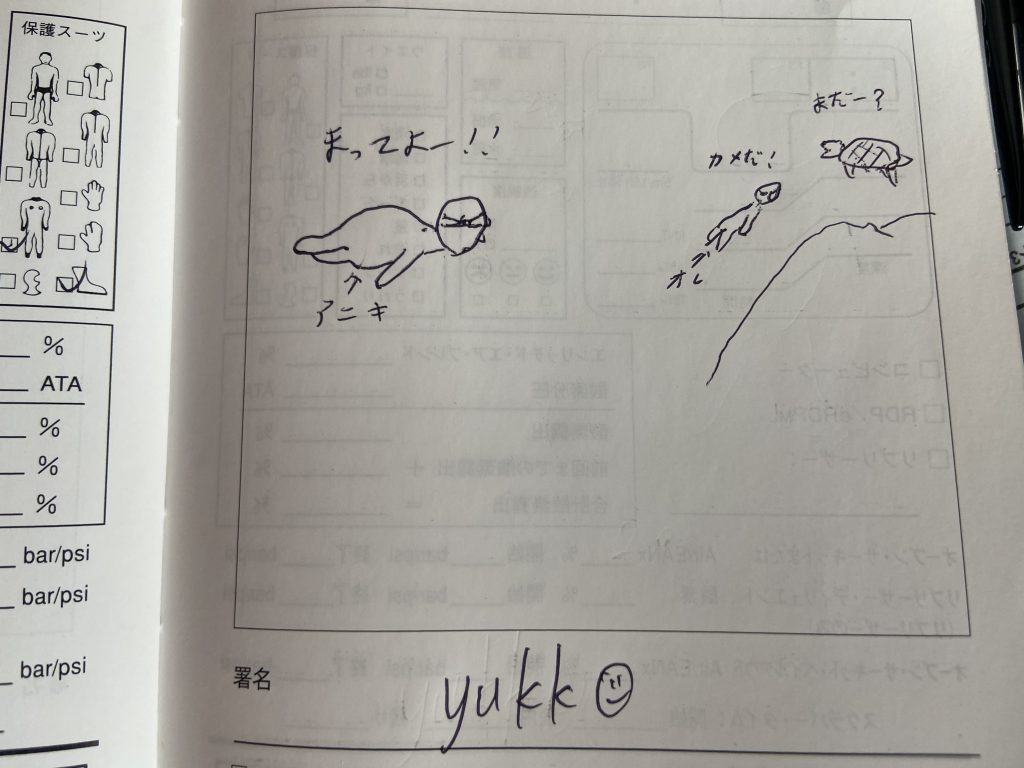 保護スーツ
%
ATA
%
%
%
bar/psi
bar/psi
bar/psi
まってよー!!
アニキ
カメだ!
オレ
まだー?
署名
yukk